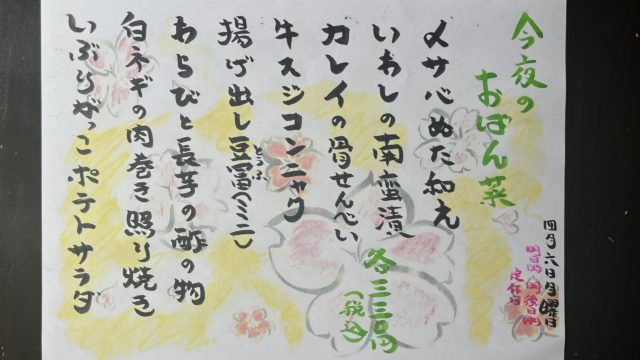 四月六日月曜日
明日(火)明後日(水)
定休日
今夜の
おばん菜
〆サバぬた和え
いわしの南蛮漬
カレイの骨せんべい
牛スジコンニャク
揚げ出し豆富(ミニ)
とうふ
わらびと長芋の酢の物
白ネギの肉巻き照り焼き
いぶりがっこポテトサラダ
各三三〇円
(税込)